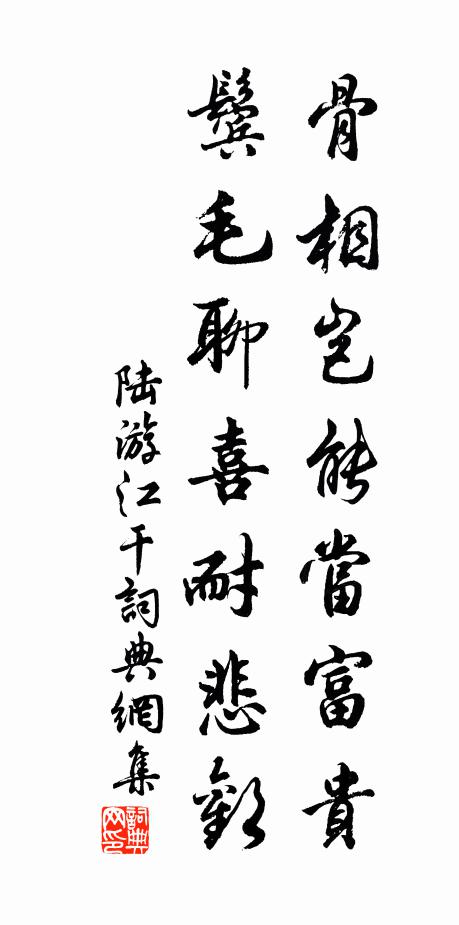 骨相岂能當富貴
鬓毛聊喜耐悲歡
陆游江干詞典網集
詞典
网印